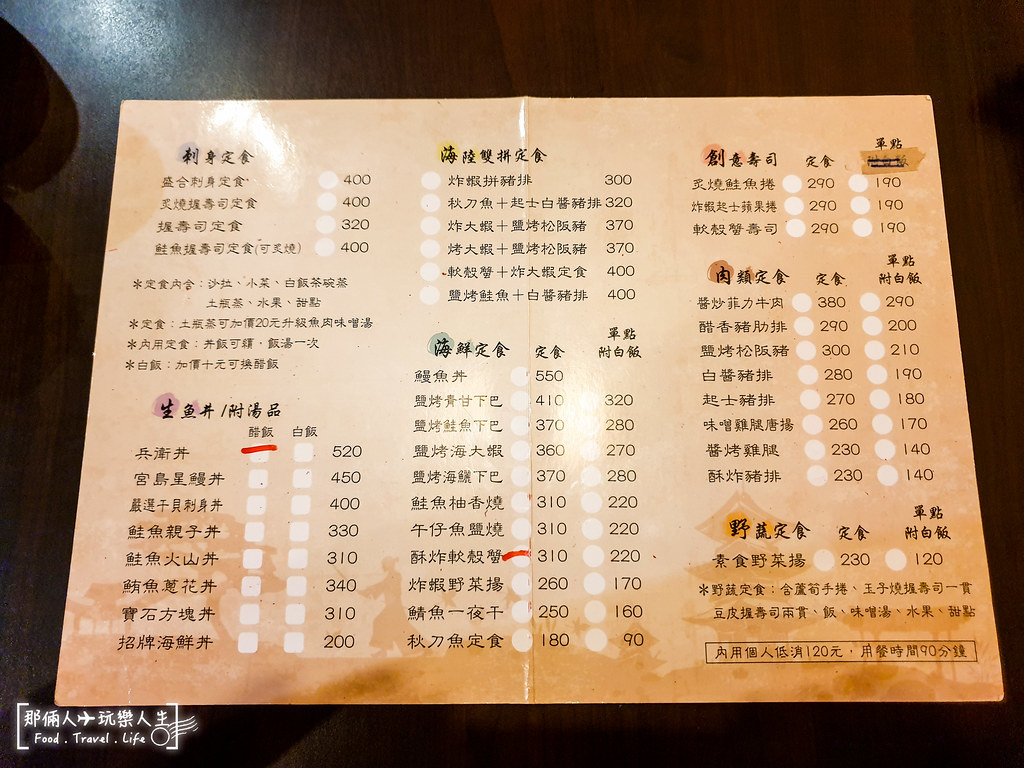 刺身定食
盛合刺身定食 400
炙燒握壽司定食 400
握壽司定食 320
鮭魚握壽司定食(可炙燒) 400
*定食內含：沙拉、小菜、白飯茶碗蒸
土瓶蒸、水果、甜點
*定食：土瓶蒸可加價20元升級魚肉味噌湯
*內用定食：丼飯可續，飯湯一次
*白飯：加價十元可換醋飯
生魚丼/附湯品
醋飯 白飯
兵衛丼 520
宮島星鰻丼 450
嚴選干貝刺身丼 400
鮭魚親子丼 330
鮭魚火山丼 310
鮪魚蔥花丼 340
寶石方塊丼 310
招牌海鮮丼 200
海陸雙拼定食
炸蝦拼豬排 300
秋刀魚+起士白醬豬排 320
炸大蝦+鹽烤松阪豬 370
烤大蝦+鹽烤松阪豬 370
軟殼蟹+炸大蝦定食 400
鹽烤鮭魚+白醬豬排 400
海鮮定食 定食 單點
附白飯
鰻魚丼 550
鹽烤青甘下巴 410 320
鹽烤鮭魚下巴 370 280
鹽烤海大蝦 360 270
鹽烤海鱺下巴 370 280
鮭魚柚香燒 310 220
午仔魚鹽燒 310 220
酥炸軟殼蟹 310 220
炸蝦野菜揚 260 170
鯖魚一夜干 250 160
秋刀魚定食 180 90
創意壽司 定食 單點
炙燒鮭魚捲 290 190
炸蝦起士蘋果捲 290 190
軟殼蟹壽司 290 190
肉類定食 定食 單點
附白飯
醬炒菲力牛肉 380 290
醋香豬肋排 290 200
鹽烤松阪豬 300 210
白醬豬排 280 190
起士豬排 270 180
味噌雞腿唐揚 260 170
醬烤雞腿 230 140
酥炸豬排 230 140
野蔬定食 定食 單點
附白飯
素食野菜揚 230 120
*野蔬定食：含蘆筍手捲、玉子燒握壽司一貫
豆皮握壽司兩貫、飯、味噌湯、水果、甜點
內用個人低消120元，用餐時間90分鐘
那倆人玩樂人生
Food . Travel . Life